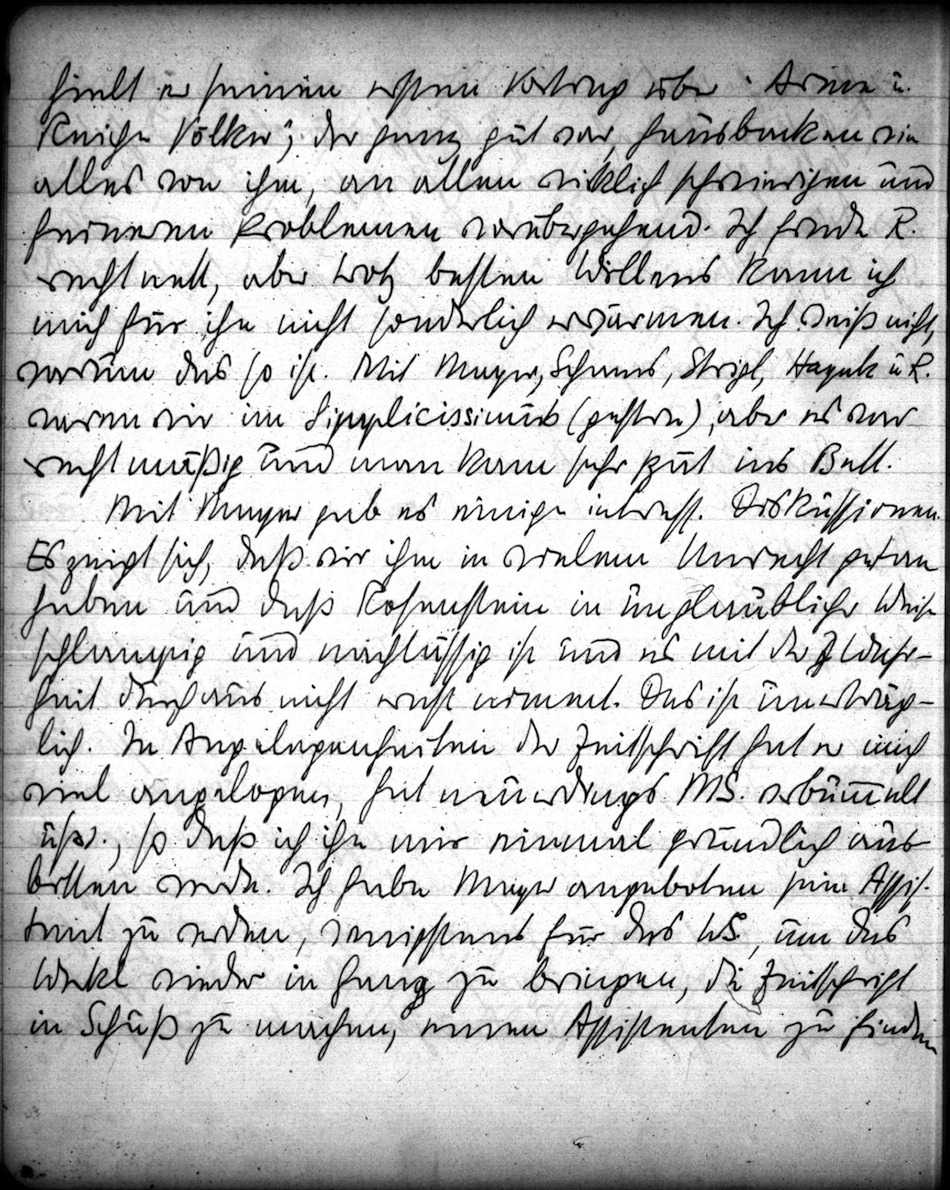 hielt er seinen ersten Vortrag über "Arme u.
Reiche Völker", der ganz gut war, hausbacken wie
alles von ihm, an allen wirklich schwierigen und
feineren Problemen vorübergehend. Ich finde R.
recht nett, aber trotz besten Willens kann ich
mich für ihn nicht sonderlich erwärmen. Ich weiß nicht,
warum das so ist. Mit Mayer, Schams, Strigl, Hayek u R.
waren wir im Simplicissimus (gestern), aber es war
recht mäßig und man kam sehr spät ins Bett.
Mit Mayer gab es einige interess. Diskussionen.
Es zeigt sich, daß wir ihm in vielem Unrecht getan
haben und daß Rosenstein in unglaublicher Weise
schlampig und nachlässig ist und es mit der Wahr-
heit durchaus nicht ernst nimmt. Das ist unerträg-
lich. In Angelegenheiten der Zeitschrift hat er mich
viel angelogen, hat neuerdings MS. verbummelt
usw., so daß ich ihn mir einmal gründlich aus-
borgen werde. Ich habe Mayer angeboten sein Assis-
tent zu werden, wenigstens für das WS, um das
Werkl wieder in Gang zu bringen, die Zeitschrift
in Schuß zu machen, einen Assistenten zu finden